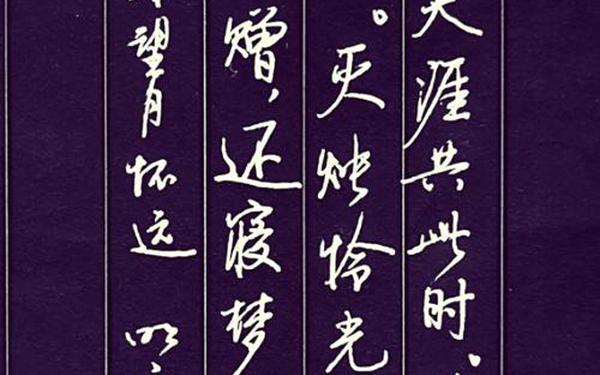 天涯共此时。
。灭烛怜光
赠，还寝梦
望月怀远